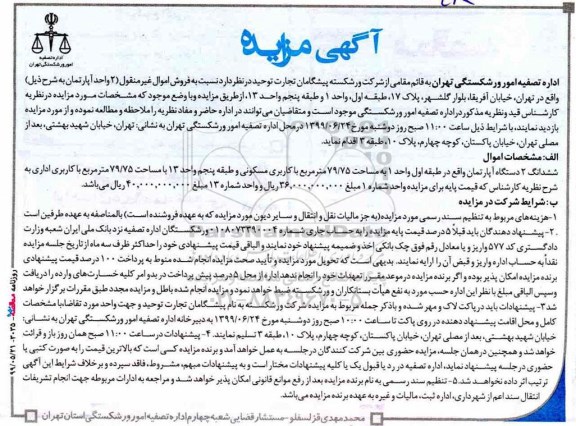 آگهی مزایده
اداره تصفیه
امور ورشکستگی تهران
اداره تصفیه امور ورشکستگی تهران به قائم مقامی از شرکت ورشکسته پیشگامان تجارت توحید در نظر دارد نسبت به فروش اموال غیر منقول (۲ واحد آپارتمان به شرح ذیل)
واقع در تهران، خیابان آفریقا، بلوار گلشهر، پلاک ۱۷، طبقه اول، واحد ۱ و طبقه پنجم واحد ۱۳، از طریق مزایده و با وضع موجود که مشخصات مورد مزایده در نظریه
کارشناس قید و نظریه مذکور در اداره تصفیه امور ورشکستگی موجود است و متقاضیان می‌توانند در اداره حاضر و مفاد نظریه را ملاحظه و مطالعه نموده و از مورد مزایده
بازدید نمایند، با شرایط ذیل ساعت ۱۱:۰۰ صبح روز دوشنبه مورخ ۱۳۹۹/۰۶/۲۴ در محل اداره تصفیه امور ورشکستگی تهران به نشانی: تهران، خیابان شهید بهشتی، بعد از
مصلی تهران، خیابان پاکستان، کوچه چهارم، پلاک ۱۰، طبقه ۳ اقدام نماید.
الف: مشخصات اموال
ششدانگ ۲ دستگاه آپارتمان واقع در طبقه اول واحد ۱ به مساحت ۷۹/۷۵ متر مربع با کاربری مسکونی و طبقه پنجم واحد ۱۳ با مساحت ۷۹/۷۵ مترمربع با کاربری اداری به
شرح نظریه کارشناس که قیمت پایه برای مزایده واحد شماره ۱ مبلغ ۳۶,۰۰۰,۰۰۰,۰۰۰ ریال و واحد شماره ۱۳ مبلغ ۴۰,۰۰۰,۰۰۰,۰۰۰ ریال می‌باشد.
ب: شرایط شرکت در مزایده
۱-هزینه‌های مربوط به تنظیم سند رسمی مورد مزایده (به جز مالیات نقل و انتقال و سایر دیون مورد مزایده که به عهده فروشنده است) بالمناصفه به عهده طرفین است
۲- پیشنهاد دهندگان باید قبلاً ۵ درصد قیمت پایه مزایده را بابت حساب تجاری شماره ورشکستگان اداره تصفیه نزد بانک ملی ایران شعبه وزارت
دادگستری کد ۵۷۷ واریز و یا معادل رقم فوق چک بانکی اخذ و ضمیمه پیشنهاد خود نمایند و الباقی قیمت پیشنهادی خود را حداکثر ظرف سه ماه از تاریخ جلسه مزایده
نقداً به حساب اداره واریز و قبض آن را ارایه نمایند. بدیهی است که تحویل مورد مزایده و تأیید صحت مزایده انجام شده منوط به پرداخت ۱۰۰ درصد قیمت پیشنهادی
برنده مزایده امکان پذیر بوده و اگر برنده مزایده در موعد مقرر تعهدات خود را انجام ندهد اداره از محل ۵ درصد پیش پرداخت در بدو امر کلیه خسارت‌های وارده را دریافت
و سپس الباقی مبلغ با نظر این اداره حسب مورد به نفع هیأت بستانکاران ورشکسته ضبط خواهد نمود و مزایده انجام شده باطل و مزایده مجدد طبق مقررات برگزار خواهد
شد ۳- پیشنهادات باید در پاکت لاک و مهر شده و با ذکر جمله مربوط به مزایده شرکت ورشکسته به نام پیشگامان تجارت توحید و جهت واحد مورد تقاضا با مشخصات
کامل و محل اقامت پیشنهاد دهنده در روی پاکت تا ساعت ۱۰:۰۰ صبح روز دوشنبه مورخ ۱۳۹۹/۰۶/۲۴ به دبیرخانه اداره تصفیه امور ورشکستگی تهران به نشانی:
خیابان شهید بهشتی، بعد از مصلی تهران، خیابان پاکستان، کوچه چهارم، پلاک ۱۰، طبقه ۳ تسلیم نمایند. ۴- پیشنهادات در ساعت ۱۱:۰۰ صبح همان روز باز و قرائت
خواهد شد و همچنین در همان جلسه، مزایده حضوری بین شرکت کنندگان در جلسه به عمل خواهد آمد و برنده مزایده کسی است که بالاترین قیمت را به صورت کتبی یا
حضوری در جلسه پیشنهاد نماید، اداره تصفیه در رد یا قبول یک یا کلیه پیشنهادات مختار است و به پیشنهادات مبهم، مشروط، فاقد سپرده و برخلاف شرایط این آگهی
ترتیب اثر داده نخواهد شد. ۵- تنظیم سند رسمی به نام برنده مزایده بعد از رفع موانع قانونی امکان پذیر خواهد شد و مراجعه به ادارات مربوطه جهت انجام تشریفات
انتقال سند اعم از شهرداری، اداره ثبت، مالیات و غیره به عهده برنده مزایده می‌باشد.
محمد مهدی قزلسفلو - مستشار قضایی شعبه چهارم اداره تصفیه امور ورشکستگی استان تهران